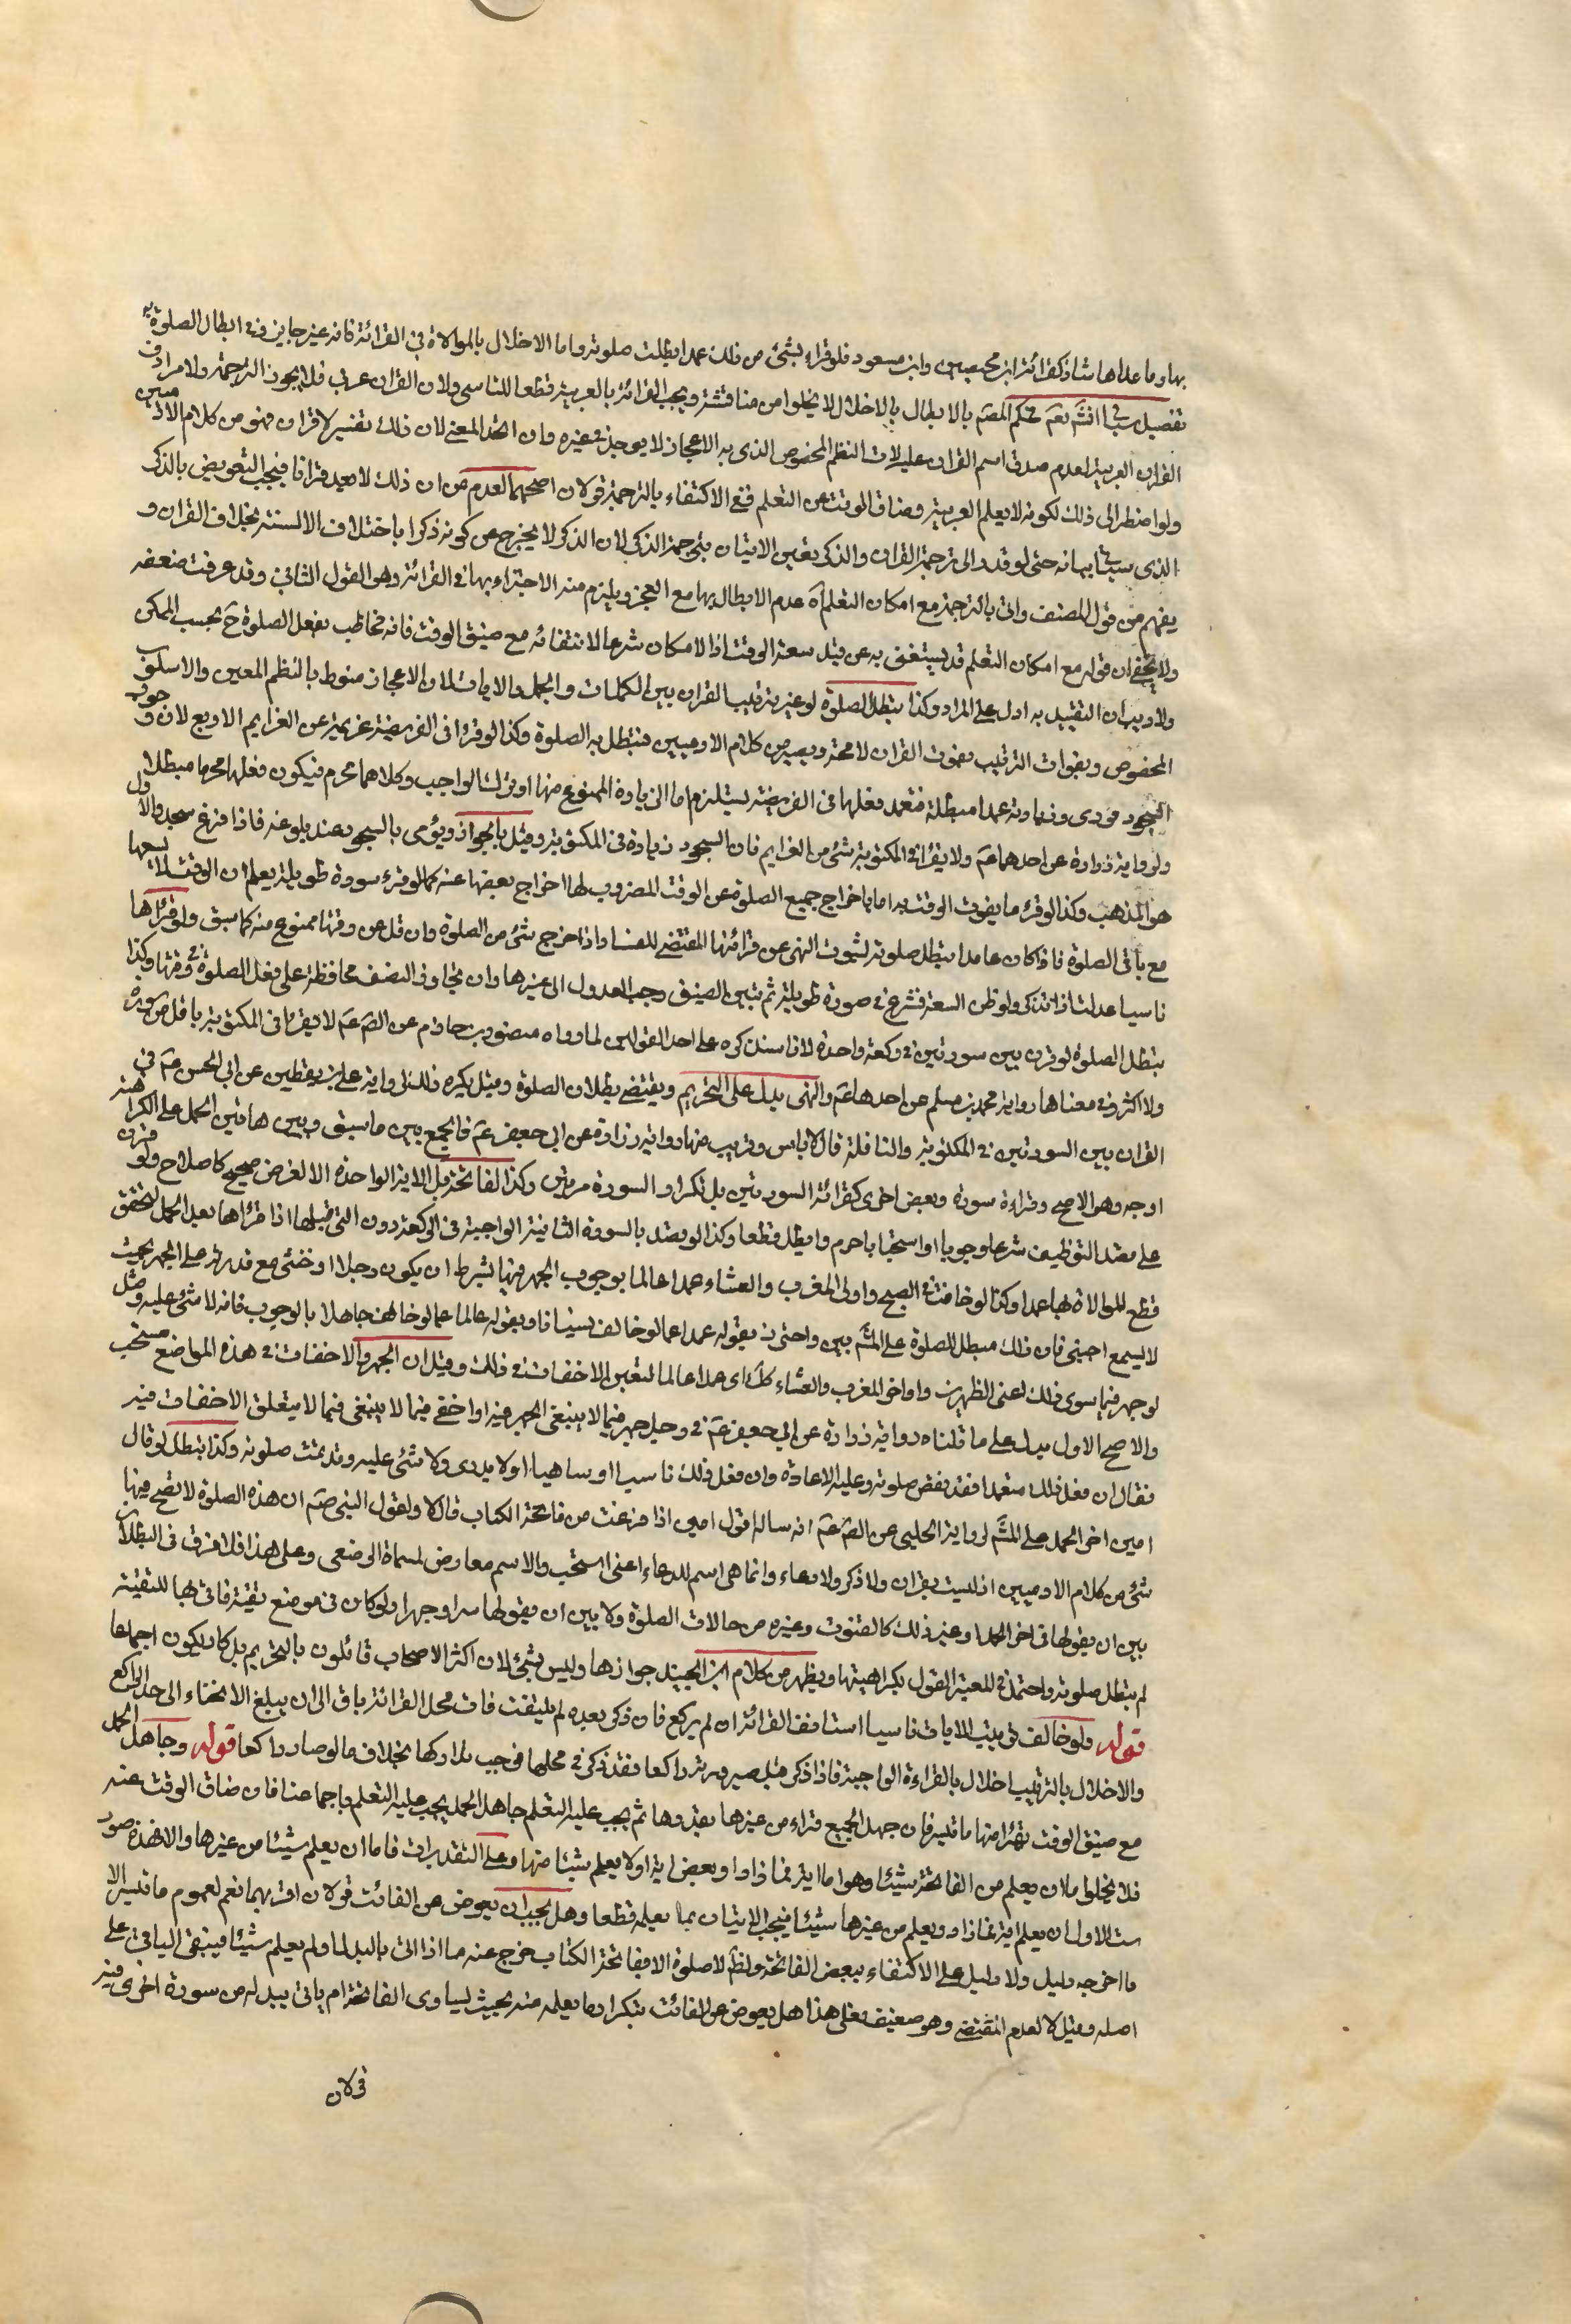 بها وما عداها شاذ كقرائة ابن محيصين وابن مسعود فلو قراء بشئ من ذلك عمدا بطلت صلوته واما الاخلال بالموالاة فى القرائة فانه غير جايز وفى ابطال الصلوة به
تفصيل سياتى انشَّ تعَم فحكم المصَم بالابطال بالاخلال لا يخلوا من مناقشة ويجب القرائة بالعربية قطعا للتاسى ولان القران عربى فلا يجوز الترجمة ولا مرادف
القران العربية لعدم صدق اسم القران عليه لان النظم المخصوص الذى به الاعجاز لا يوجد فى غيره وان اتحد المعنى لان ذلك تفسير لا قران فهو من كلام الادميين
ولو اضطر الى ذلك لكونه لا يعلم العربية وضاق الوقت عن التعلم ففى الاكتفاء بالترجمة قولان اصحهما العدم من ان ذلك لا يعيد قرانا فيجب التعويض بالذكر
الذى سياتى بيانه حتى لو قدر الى ترجمة القران والذكر تعين الاتيان بترجمة الذكر لان الذكر لا يخرج عن كونه ذكرا باختلاف الالسنة بخلاف القران و
يفهم من قول المصنف واتى بالترجمة مع امكان التعلم آه عدم الابطال بها مع العجز ويلزم منه الاجتزاء بها فى القرائة وهو القول الثانى وقد عرفت ضعفه
ولا يخفى ان قوله مع امكان التعلم قد يستغنى به عن قيد سعة الوقت اذ لا امكان شرعا لانتفائه مع ضيق الوقت فانه مخاطب بفعل الصلوة حَ بحسب الممكن
ولا ريب ان التقييد به ادل على المراد وكذا تبطل الصلوة لو غير ترتيب القران بين الكلمات والجمل والايات لان الاعجاز منوط بالنظم المعين والاسلوب
المخصوص وبفوات الترتيب يفوت القران لا محة ويصير من كلام الادميين فتبطل به الصلوة وكذا لو قرا فى الفريضة عزيمة من العزايم الاربع لان وجوب
السجود فورى وزيادته عمدا مبطلة فتعمد فعلها فى الفريضة يستلزم اما الزيادة الممنوع منها او ترك الواجب وكلاهما محرم فيكون فعلها محرما مبطلا
ولرواية زرارة عن احدهما عَم ولا يقرا فى المكتوبة شئ من العزايم فان السجود زيادة فى المكتوبة وقيل بالجواز ويؤمى بالسجود عند بلوغه فاذا فرغ سجد والاول
هو المذهب وكذا لو قرء ما يفوت الوقت به اما باخراج جميع الصلوة عن الوقت المضروب لها او اخراج بعضها عنه كما لو قرء سورة طويلة يعلم ان الوقت لا يسعها
مع باقى الصلوة فاذا كان عامدا تبطل صلوته لثبوت النهى عن قرائتها المقتضى للفساد واذا خرج شئ من الصلوة وان قل عن وقتها ممنوع منه كما سبق ولو قراها
ناسيا عدل اذا تذكر ولو ظن السعة فشرع فى صورة طويلة ثم تبين الضيق وجب العدول الى غيرها وان تجاوز النصف محافظة على فعل الصلوة فى وقتها وكذا
تبطل الصلوة لو قرن بين سورتين فى ركعة واحدة لاذا سندكره على احد القولين لما رواه منصور بن حازم عن الصَ عَم لا يقرا فى المكتوبة باقل من سورة
ولا اكثر وفى معناها رواية محمد بن مسلم عن احدهما عَم والنهى يدل على التحريم ويقتضى بطلان الصلوة وقيل يكره ذلك لرواية على بن يقطين عن ابى الحسن عَم فى
القران بين السورتين فى المكتوبة والنافلة قال لا باس وقريب منها رواية زرارة عن ابى جعفر عَم فالجمع بين ما سبق وبين هاتين الحمل على الكراهة
اوجه وهو الاصح وقراءة سورة وبعض اخرى كقرائة السورتين بل تكرار السورة مرتين وكذا الفاتحة بل الاية الواحدة الا لغرض صحيح كاصلاح ولو قرن
على قصد التوظيف شرعا وجوبا او استحبابا حرم وابطل قطعا وكذا لو قصد بالسورة الثانية الواجبة فى الركعة دون التى قبلها اذا قراها بعد الحمل لتحقق
قطع للموالاة بها عمدا وكذا لو خافت فى الصبح واولى المغرب والعشاء عمدا عالما بوجوب الجهر فيها بشرط ان يكون رجلا او خنثى مع قدرته على الجهر بحيث
لا يسمع اجنبى فان ذلك مبطل للصلوة على المشَ بين واحترز بقوله عمدا عما لو خالف نسيانا وبقوله عالما عما لو خالف جاهلا بالوجوب فانه لا شئ عليه ومثل
لو جهر فيما سوى ذلك اعنى الظهرين واواخر المغرب والعشاء كلَ اى عمدا عالما لتعين الاخفات فى ذلك وقيل ان الجهر والاخفات فى هذه المواضع مستحب
والاصح الاول يدل على ما قلناه رواية زرارة عن ابى جعفر عَم فى رجل جهر فيما لا ينبغى الجهر فيه او اخفى فيما لا ينبغى فيما لا يتعلق الاخفات فيه
فقال ان فعل ذلك متعمدا فقد نقض صلوته وعليه الاعادة وان فعل ذلك ناسيا او ساهيا او لا يدرى ولا شئ عليه وقد تمت صلوته وكذا تبطل لو قال
امين اخر الحمل على المشَ لرواية الحلبى عن الصَ عَم انه ساله اقول امين اذا فرغت من فاتحة الكتاب قال لا ولقول النبى صَم ان هذه الصلوة لا يصح فيها
شئ من كلام الادميين اذ ليست بقران ولا ذكر ولا دعاء وانما هى اسم للدعاء اعنى استجب والاسم معارض لمسماه الوضعى وعلى هذا فلا فرق فى البطلان
بين ان يقولها فى اخر الحمد او غير ذلك كالقنوت وغيره من حالات الصلوة ولا بين ان يقولها سرا وجهرا ولو كان فى موضع تقية فاتى بها للتقية
لم تبطل صلوته واحتمل فى المعتبر القول بكراهيتها ويظهر من كلام ابن الجنيد جوازها وليس بشئ لان اكثر الاصحاب قائلون بالتحريم بل كاد يكون اجماعا
قوله ولو خالف ترتيب الايات ناسيا استانف القرائة ان لم يركع فان ذكر بعده لم يلتفت فات محل القرائة باق الى ان يبلغ الانحناء الى حد الراكع
والاخلال بالترتيب اخلال بالقراءة الواجبة فاذا ذكر قبل صيرورته راكعا فقد ذكر فى محلها فوجب تداركها بخلاف ما لو صار راكعا قوله وجاهل الحمل
مع ضيق الوقت يقرا منها ما تيسر فان جهل الجميع قراء من غيرها بقدرها ثم يجب عليه التعلم جاهل الحمد يجب عليه التعلم باجماعنا فان ضاق الوقت عنه
فلا يخلوا ما ان يعلم من الفاتحة شيئا وهو اما اية فما زاد او بعض اية او لا يعلم شيئا منها وعلى التقديرات فاما ان يعلم شيئا من غيرها والا فهذه صور
ست الاول ان يعلم اية فما زاد ويعلم من غيرها شيئا فيجب الاتيان بما يعلمه قطعا وهل يجب ان يعوض عن الفائت قولان اقربهما نعم لعموم ما تيسر الا
ما اخرجه دليل ولا دليل على الاكتفاء ببعض الفاتحة ولظَ لا صلوة الا بفاتحة الكتاب خرج عنه ما اذا اتى بالبدل لما ولم يعلم شيئا فيبقى الباقى على
اصله وقيل لا لعدم المقتضى وهو ضعيف فعلى هذا هل يعوض عن الفائت بتكرار ما يعلمه منه بحيث يساوى الفاتحة ام ياتى ببدله من سورة اخرى فيه
قولان